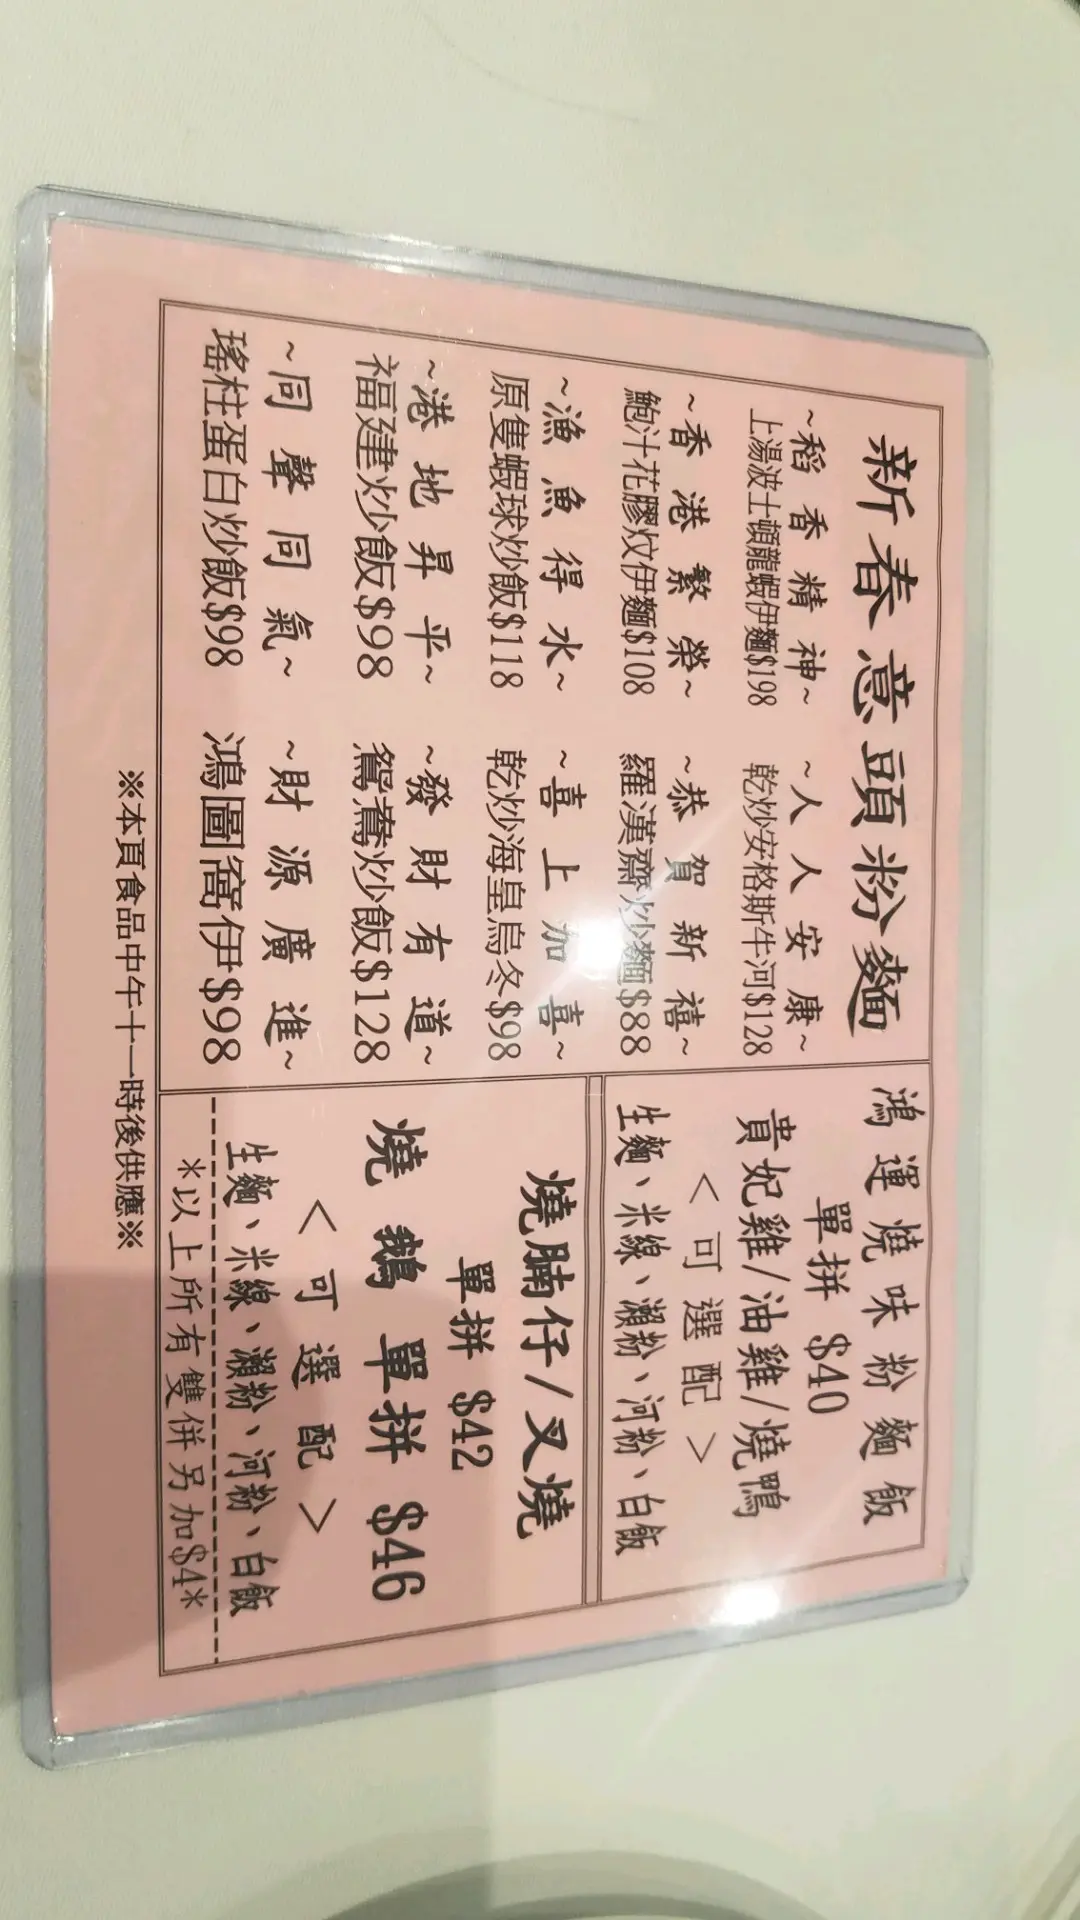 新春意頭粉麵
~稻香精神~
上湯波士頓龍蝦伊麵$198
~人人安康~
乾炒安格斯牛河$128
~香港繁榮~
鮑汁花膠炆伊麵$108
~恭賀新禧~
羅漢齋炒麵$88
~漁魚得水~
原隻蝦球炒飯$118
~喜上加喜~
乾炒海皇烏冬$98
~港地昇平~
福建炒飯$98
~發財有道~
鴛鴦炒飯$128
~同聲同氣~
瑤柱蛋白炒飯$98
~財源廣進~
鴻圖窩伊$98
鴻運燒味粉麵飯
單拼 $40
貴妃雞/油雞/燒鴨
<可選配>
生麵、米線、瀨粉、河粉、白飯
燒腩仔/叉燒
單拼 $42
燒鵝單拼 $46
<可選配>
生麵、米線、瀨粉、河粉、白飯
*以上所有雙併另加$4*
※本頁食品中午十一時後供應※